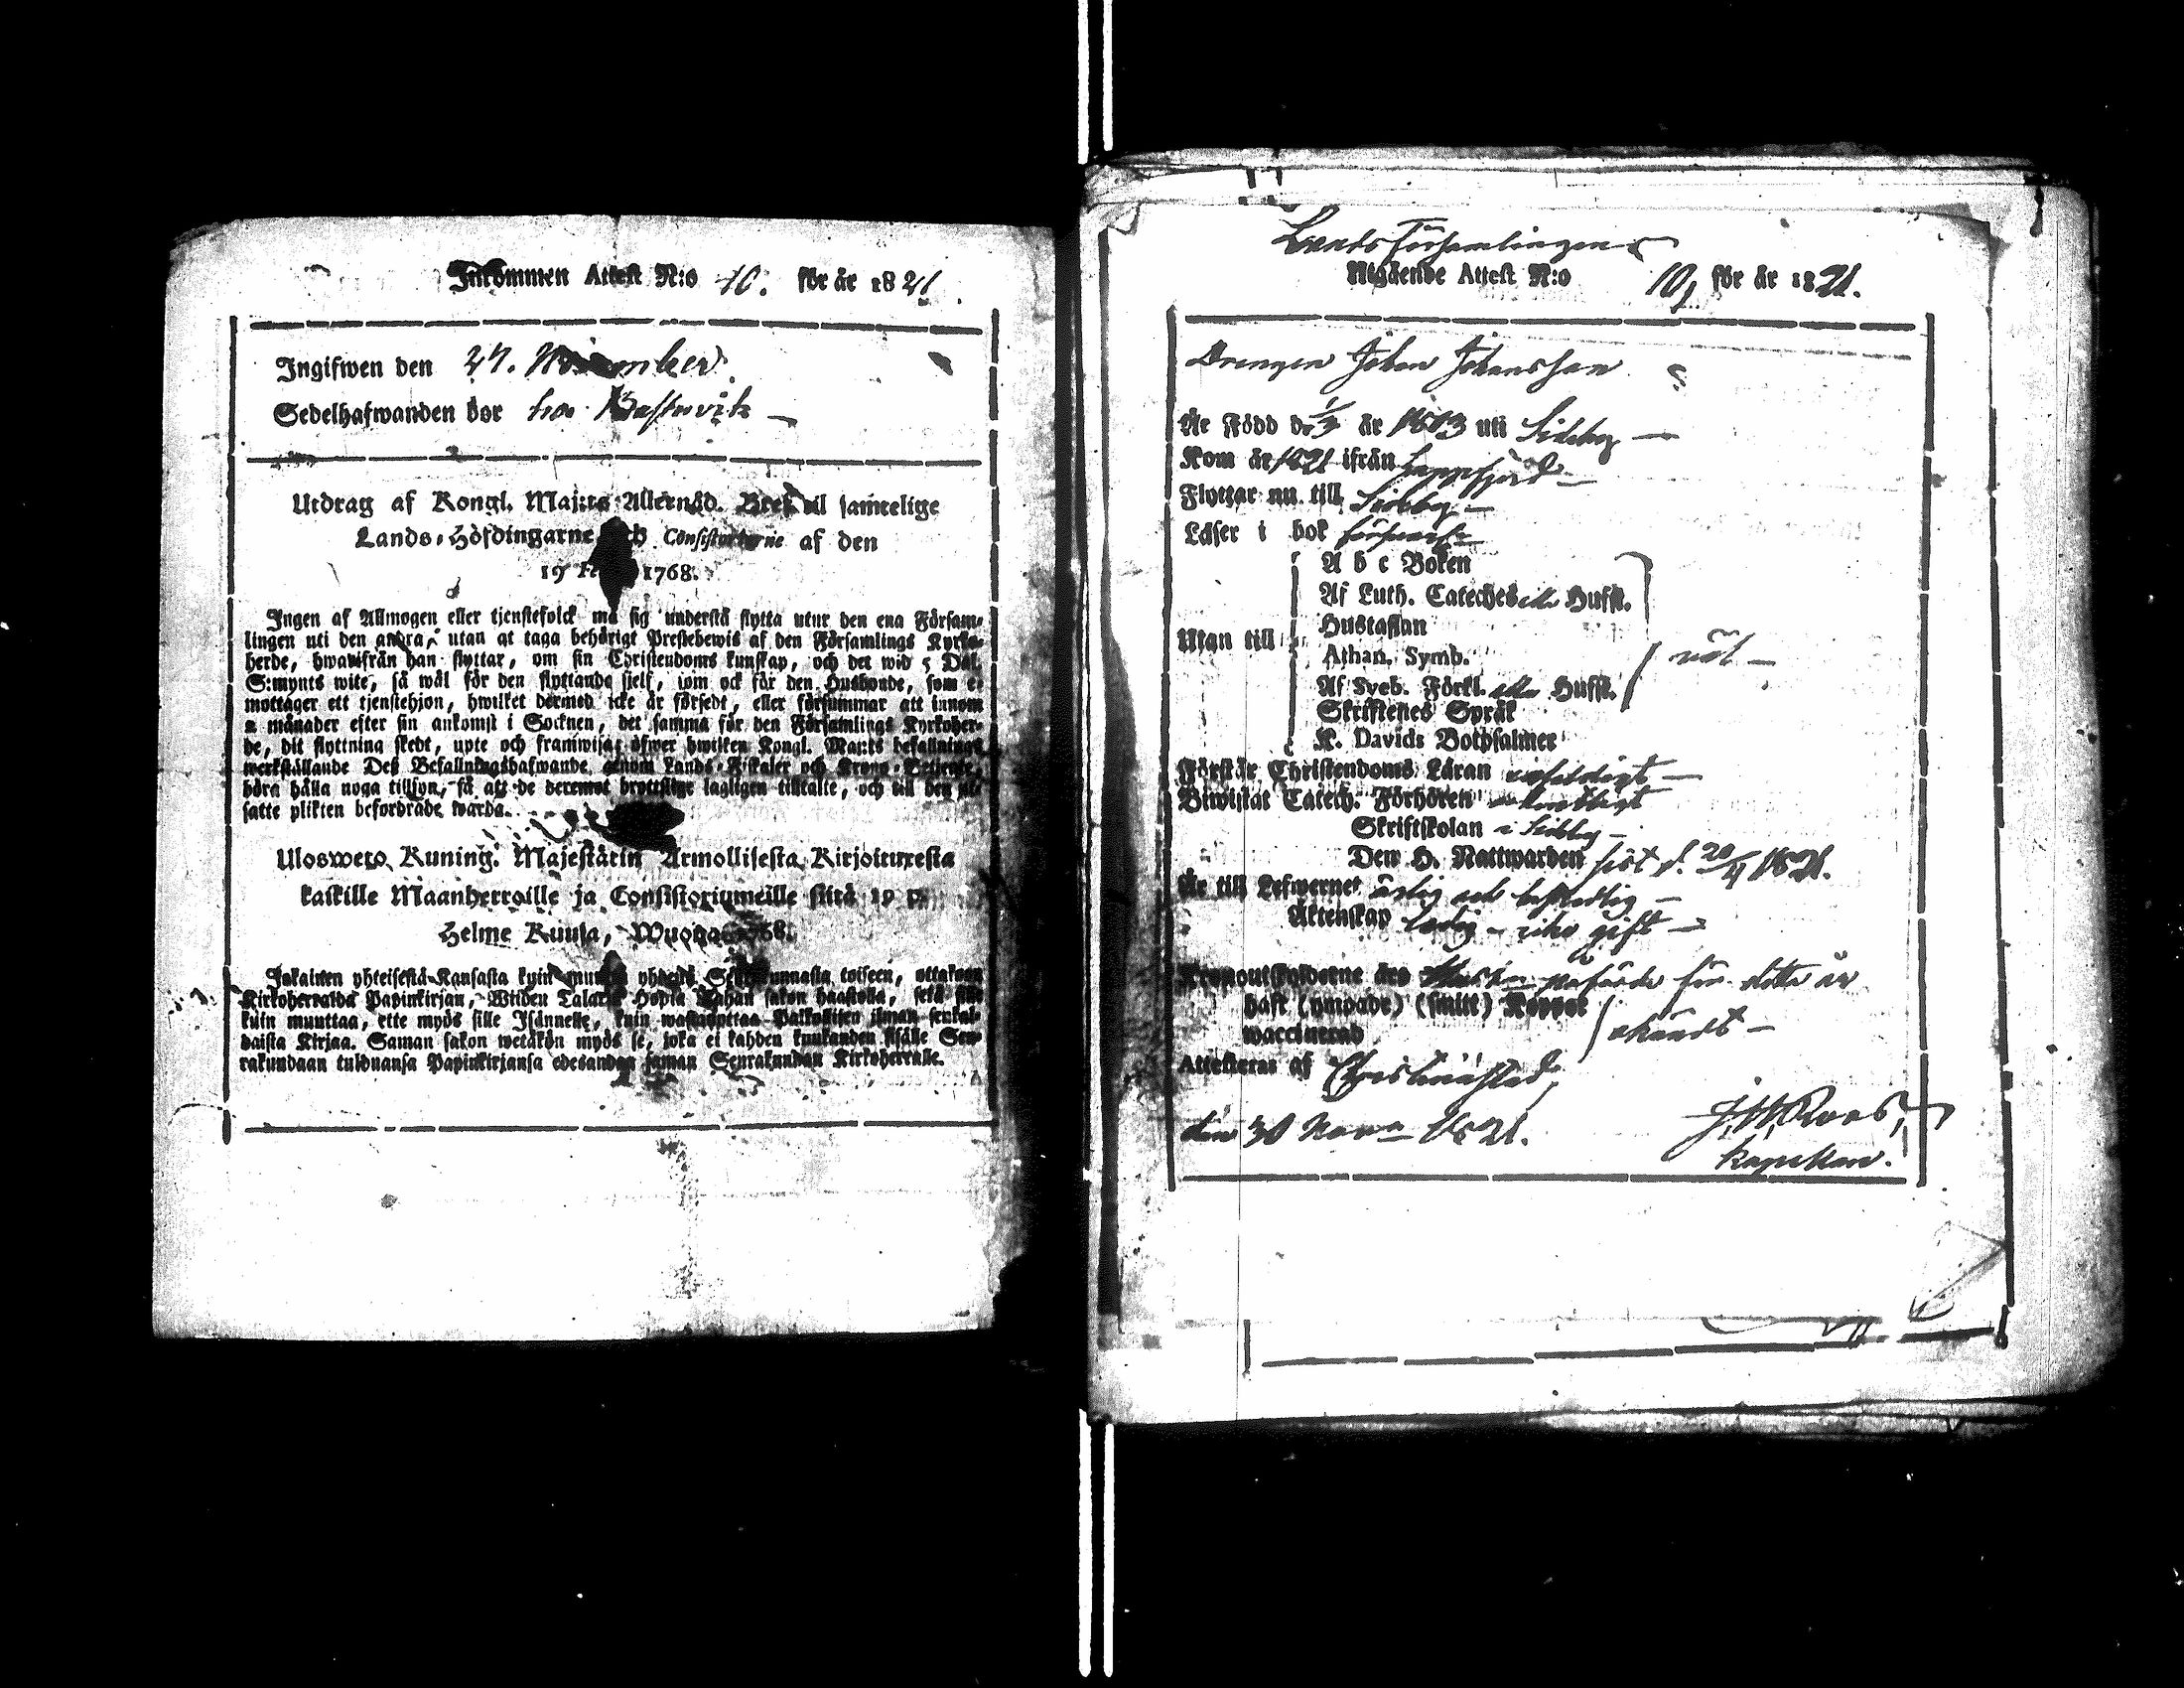 Inkommen Attest N:o 10. för år 1821
Ingifwen den 27. November
Sedelhafwanden bor hos
Utdrag af Kongl. Maj:ts Allernåd. Bref til samtelige
Lands-Höfdingarne och Consistorierne af den
19 Febr. 1768.
Ingen af Allmogen eller tjenstefolck må sig understå flytta utur den ena Försam-
lingen uti den andra, utan at taga behörigt Prestebewis af den Församlings Kyrko-
herde, hwarifrån han flyttar, om sin Christendoms kunskap, och det wid 5 Dal.
S:mynts wite, så wäl för den flyttande sjelf, som ock för den Husbonde, som e-
mottager ett tjenstehjon, hwilket dermed icke är försedt, eller försummar att innom
2 månader efter sin ankomst i Socknen, det samma för den Församlings Kyrkoher-
de, dit flyttning skedt, upte och framwisa; öfwer hwilken Kongl. Maj:ts befallnings
werkställande Deß Befallningshafwande genom Lands-Fiskaler och Krono-Betjente,
böra hålla noga tillsyn, så att de deremot brottslige lagligen tilltalte, och till den ut-
satte plikten befordrade warda.
Ulosweto Kuning. Majestätin Armollisesta Kirjoituxesta
kaikille Maanherroille ja Consistoriumeille siitä 19 p.
Helme Kuusa, Wuonna 1768.
Jokainen yhteisestä Kansasta kuin muutta yhdestä Seurakunnasta toiseen, ottakoon
Kirkoherralda Papinkirjan, Wiiden Talarin Hopia Rahan sakon haastolla, sekä sille
kuin muuttaa, ette myös sille Isännelle, kuin wastaanottaa Palkollisen ilman senkal-
daista Kirjaa. Saman sakon wetäkön myös se, joka ei kahden kuukauden sisälle Seu-
rakundaan tulduansa Papinkirjansa edesanda saman Seurakundan Kirkoherralle.
Landsförsamlingen
Utgående Attest N:o 10, för år 1821.
Drengen Johan Johansson
Är Född d. 1/3 år 1803 uti Sideby
Kom år 1821 ifrån Lappfjerd
Flyttar nu till Sideby
Läser i bok försvarl.
A b c Boken
Af Luth. Cateches eller Hufst.
Hustaflan
Utan till
Athan. Symb.
väl
Af Sveb. Förkl. eller Hufst.
Skriftenes Språk
K. Davids Botpsalmer
Förstår Christendoms Läran enfaldigt
Biwistat Catech. Förhören
Skriftskolan i Sideby
Den H. Nattwarden sist d. 20/4 1821.
Är till Lefwernet ärlig och beskedlig
Äktenskap ledig - icke gift
Kronoutskylderne äro påförde för detta år
haft (ympade) (smitt) Koppor
waccinerad
okändt
Attesteras af Christinæstad,
den 30 Nov. 1821.
J. W. Roos,
Kapellan.